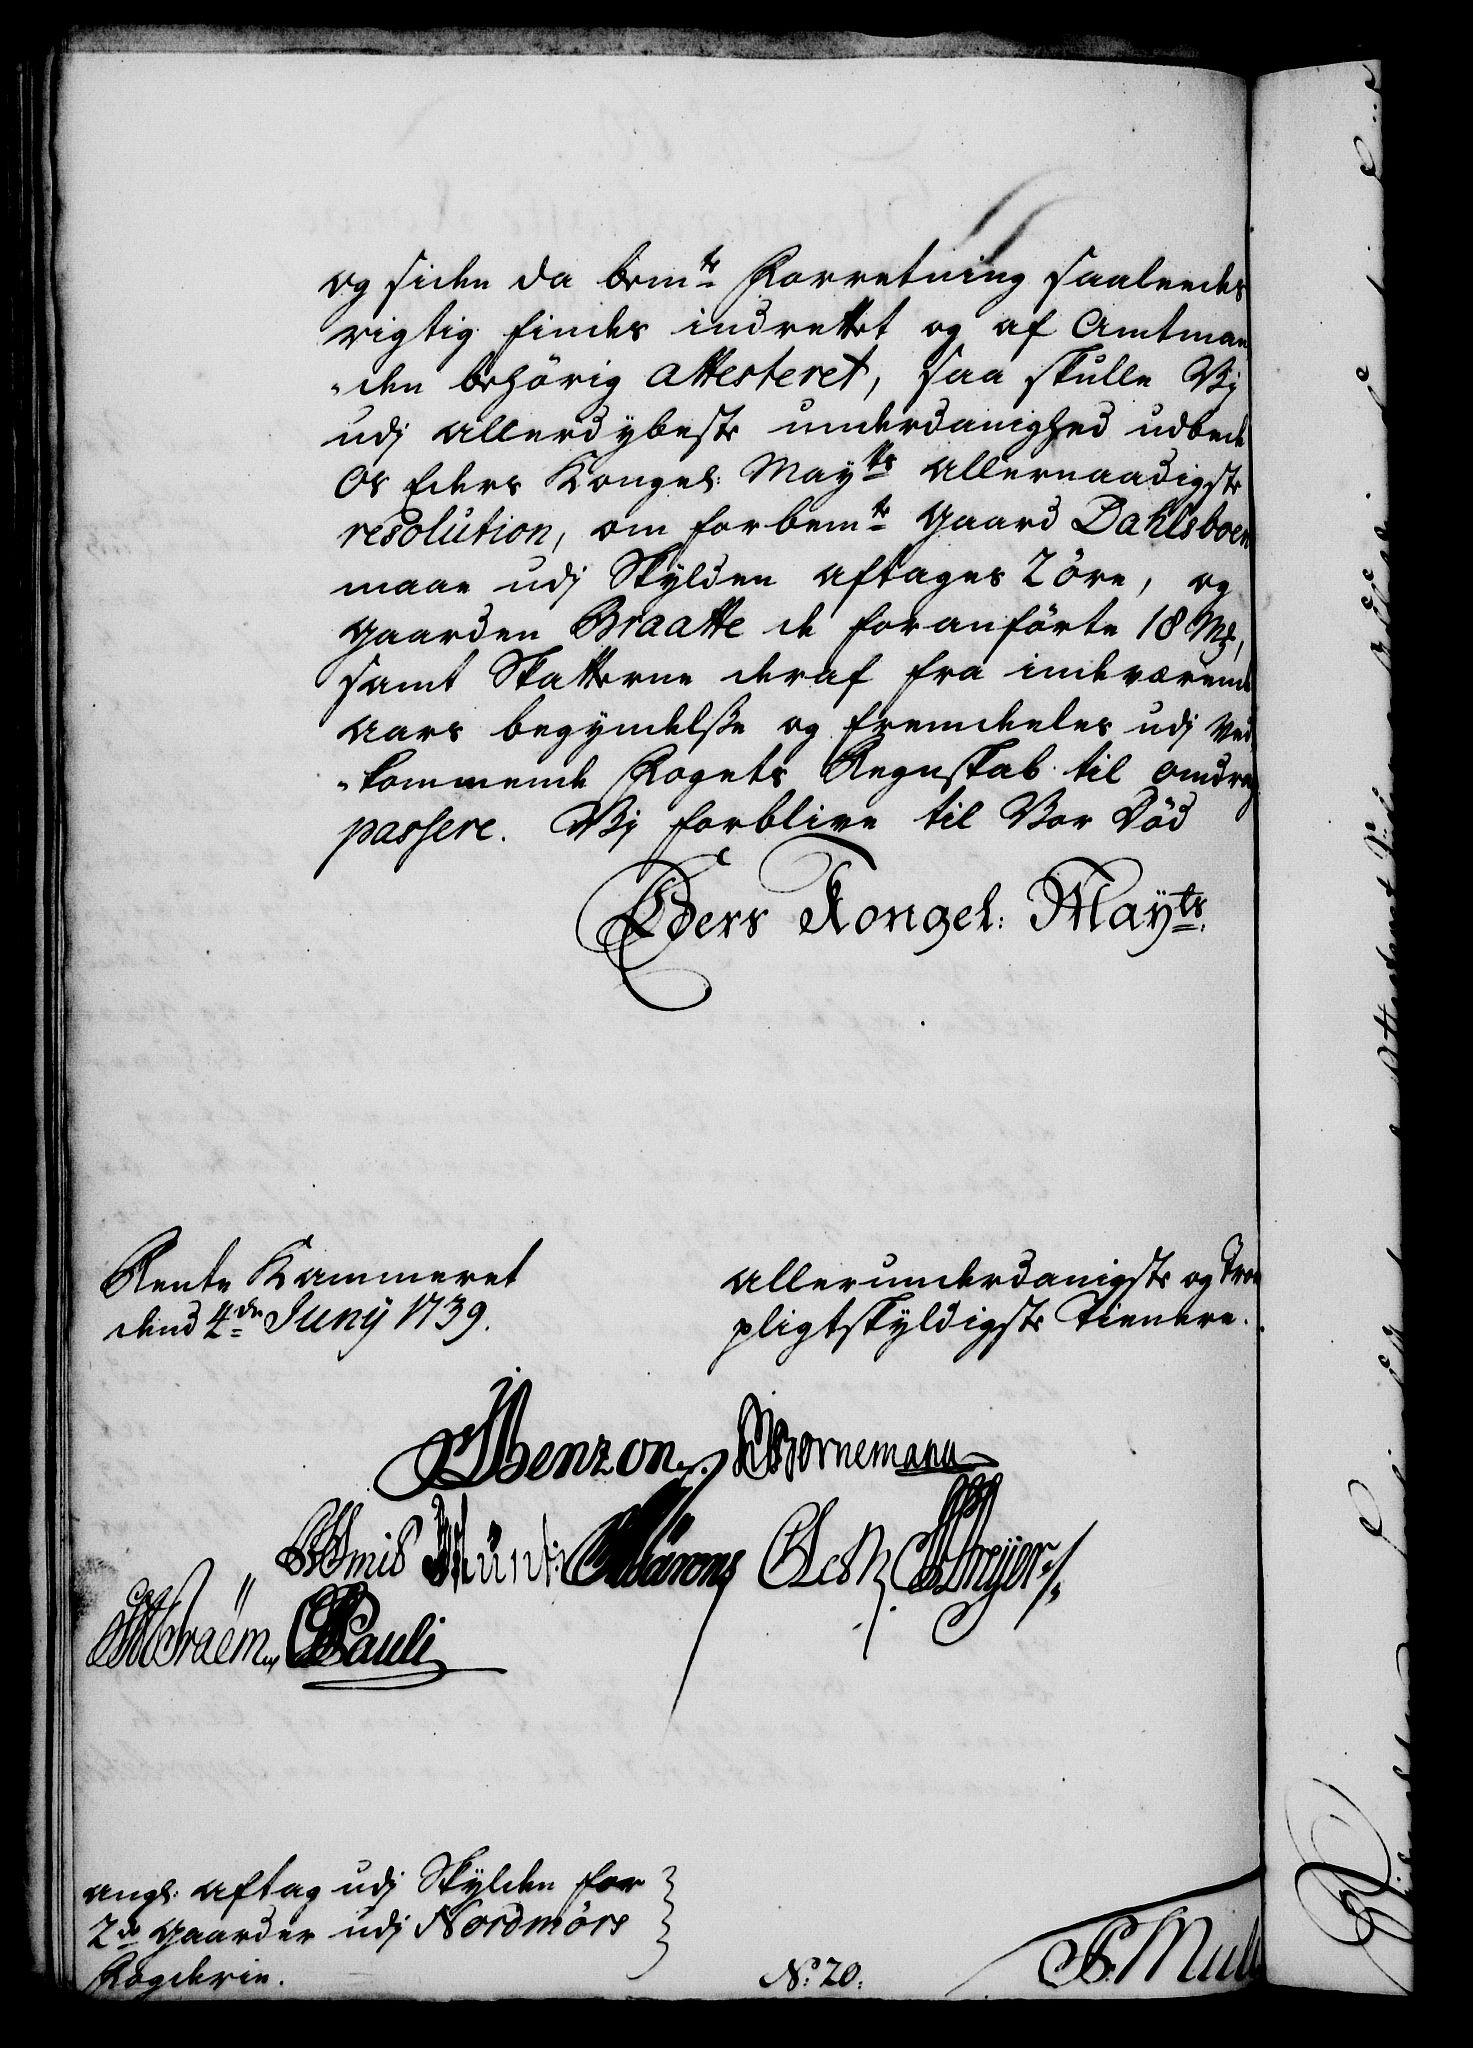 og siden da bem.te Forretning saaleedes
rigtig findes indrettet og af Amtman
-den behörig attesteret, saa skulle Vj
udj allerdybeste underdanighed udbede
Os Eders Kongel: May.tts allernaadigste
resolution, om forbem.te Gaard Dahlsboen
maae udj Skylden aftages 2 öre, og
Gaarden Braatte de foranförte 18 Mk,
samt Skatterne deraf fra indeværende
Aars begyndelsse og fremdeeles udj Ved
-kommende Fogets Regnskab til
passere. Vj forblive til Vor Död
Eders Kongel: May.ts
Rente Kammeret
dend 4.de Juny 1739.
allerunderdanigste og Troe
pligtskyldigste Tienere.
Benzon. Bornemann
Pauli
angl: aftag udj Skylden for
2.de Gaarder udj Nordmörs
Fogderie.
N.o 20.